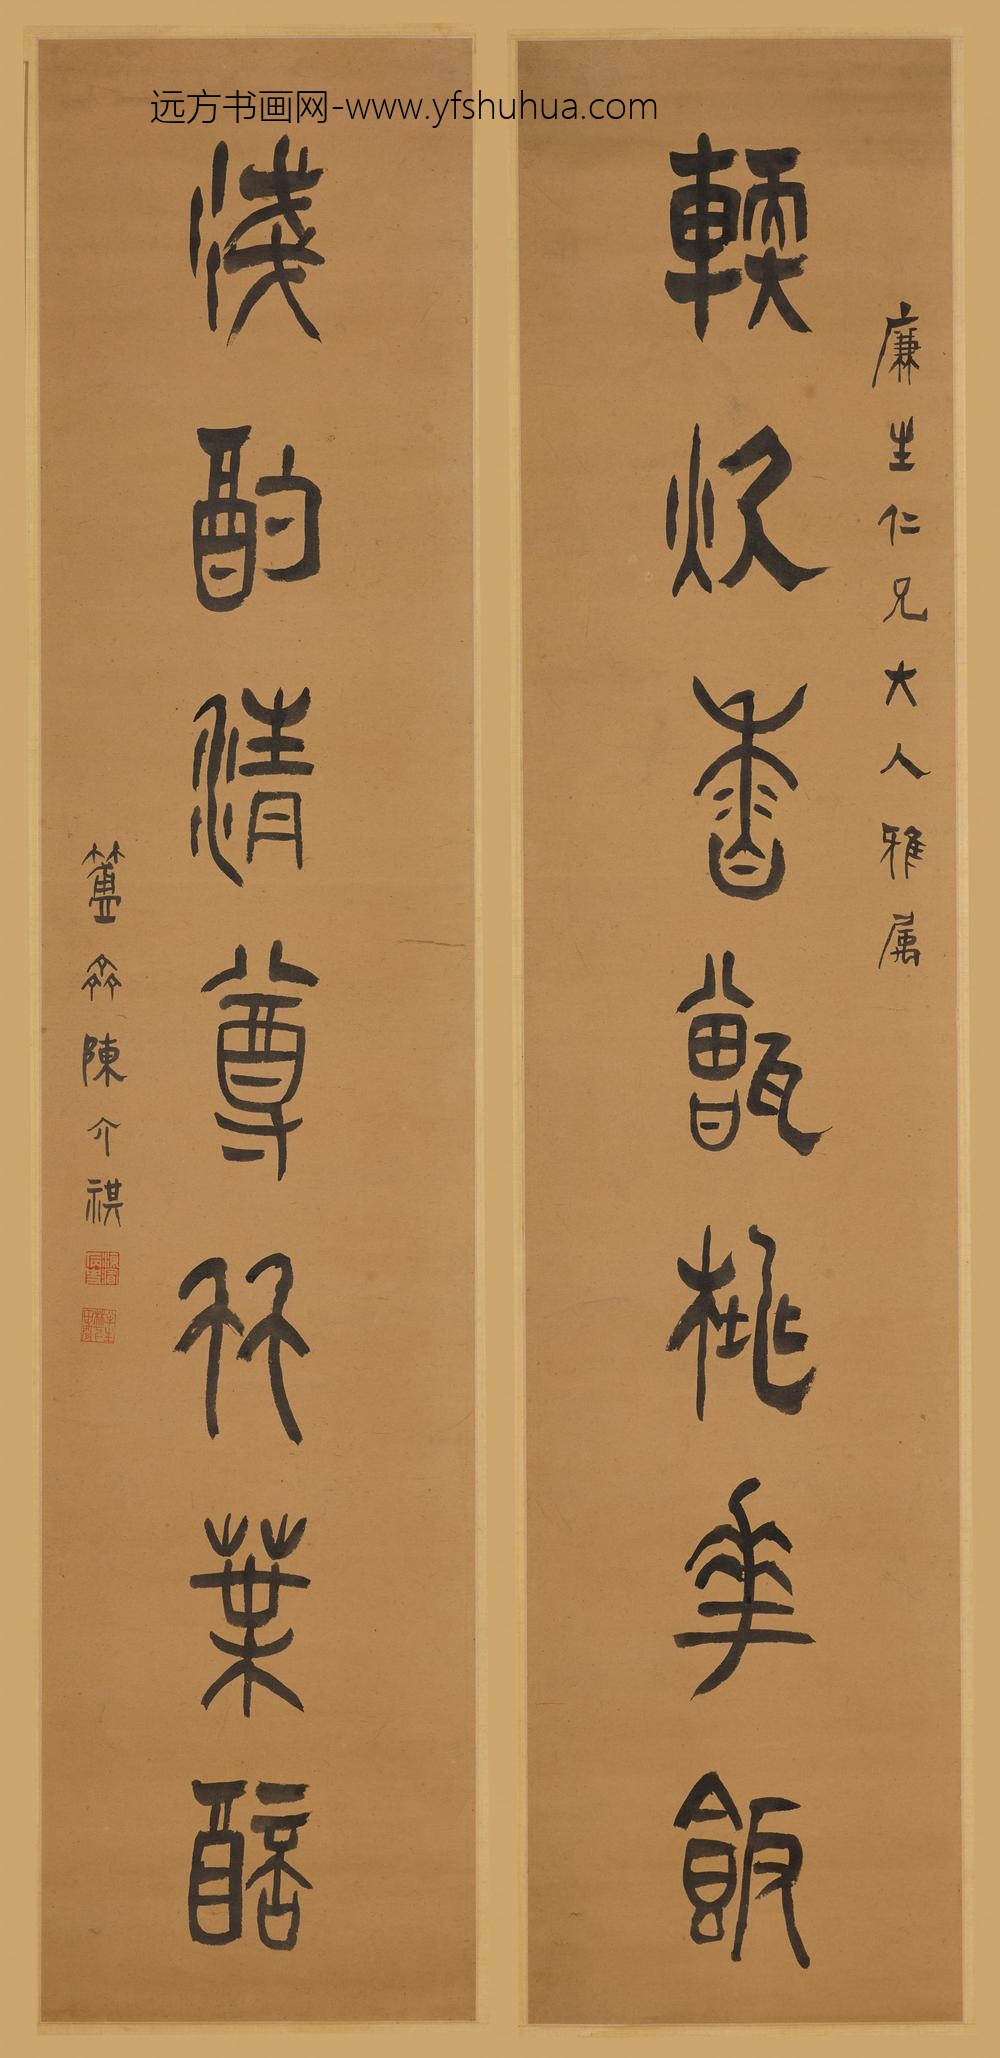 远方书画网-www.yfshuhua.com
廉生仁兄大人雅属
輭炊香甑桃華飯
淺酌清尊竹葉醅
簠齋陳介祺